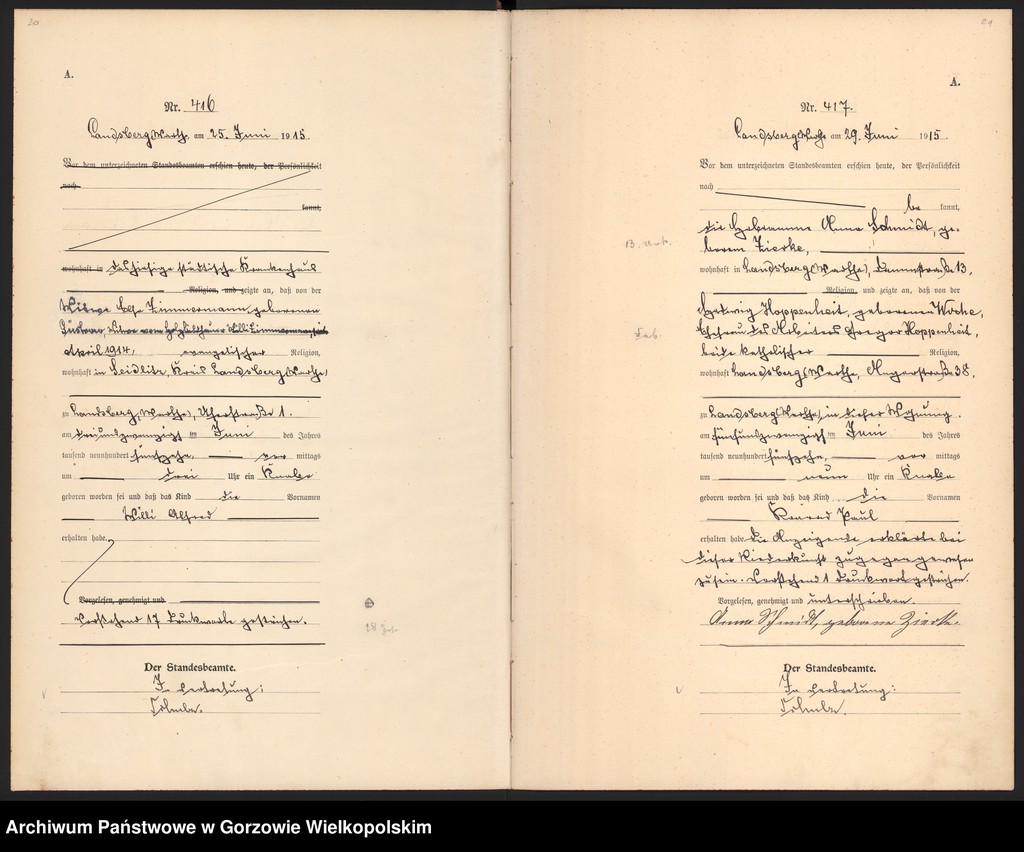 20
A.
Nr. 416
Landsberg, Warthe, am 25. Juni 1915.
Vor dem unterzeichneten Standesbeamten erschien heute, der Persönlichkeit
nach
kannt,
wohnhaft in das hiesige städtische Krankenhaus
Religion, und zeigte an, daß von der
Witwe Else Zimmermann, geborenen
April 1914, evangelischer Religion,
wohnhaft in Seidlitz, Kreis Landsberg (Warthe)
zu Landsberg (Warthe), Uferstraße 1.
am dreiundzwanzigsten Juni des Jahres
tausend neunhundert fünfzehn, vor mittags
um drei Uhr ein Knabe
geboren worden sei und daß das Kind die Vornamen
Willi Alfred
erhalten habe.
Vorgelesen, genehmigt und
Vorstehend 17 Druckworte gestrichen.
Der Standesbeamte.
In Vertretung:
A.
Nr. 417.
Landsberg (Warthe) am 29. Juni 1915.
Vor dem unterzeichneten Standesbeamten erschien heute, der Persönlichkeit
nach
be kannt,
die Hebamme Anna Schmidt, ge-
borene Zierke,
wohnhaft in Landsberg (Warthe), Dammstraße 13,
Religion, und zeigte an, daß von der
Hedwig Hoppenheit, geborenen Woche,
Ehefrau des Arbeiters Gregor Hoppenheit,
beide katholischer Religion,
wohnhaft Landsberg (Warthe), Angerstraße 38,
zu Landsberg (Warthe) in dieser Wohnung.
am fünfundzwanzigsten Juni des Jahres
tausend neunhundert fünfzehn, vor mittags
um neun Uhr ein Knabe
geboren worden sei und daß das Kind die Vornamen
Konrad Paul
erhalten habe. Die Anzeigende erklärte bei
dieser Niederkunft zugegen gewesen
zu sein. Vorstehend 1 Druckwort gestrichen.
Vorgelesen, genehmigt und unterschrieben.
Anna Schmidt, geborene Zierke.
Der Standesbeamte.
In Vertretung:
Archiwum Państwowe w Gorzowie Wielkopolskim